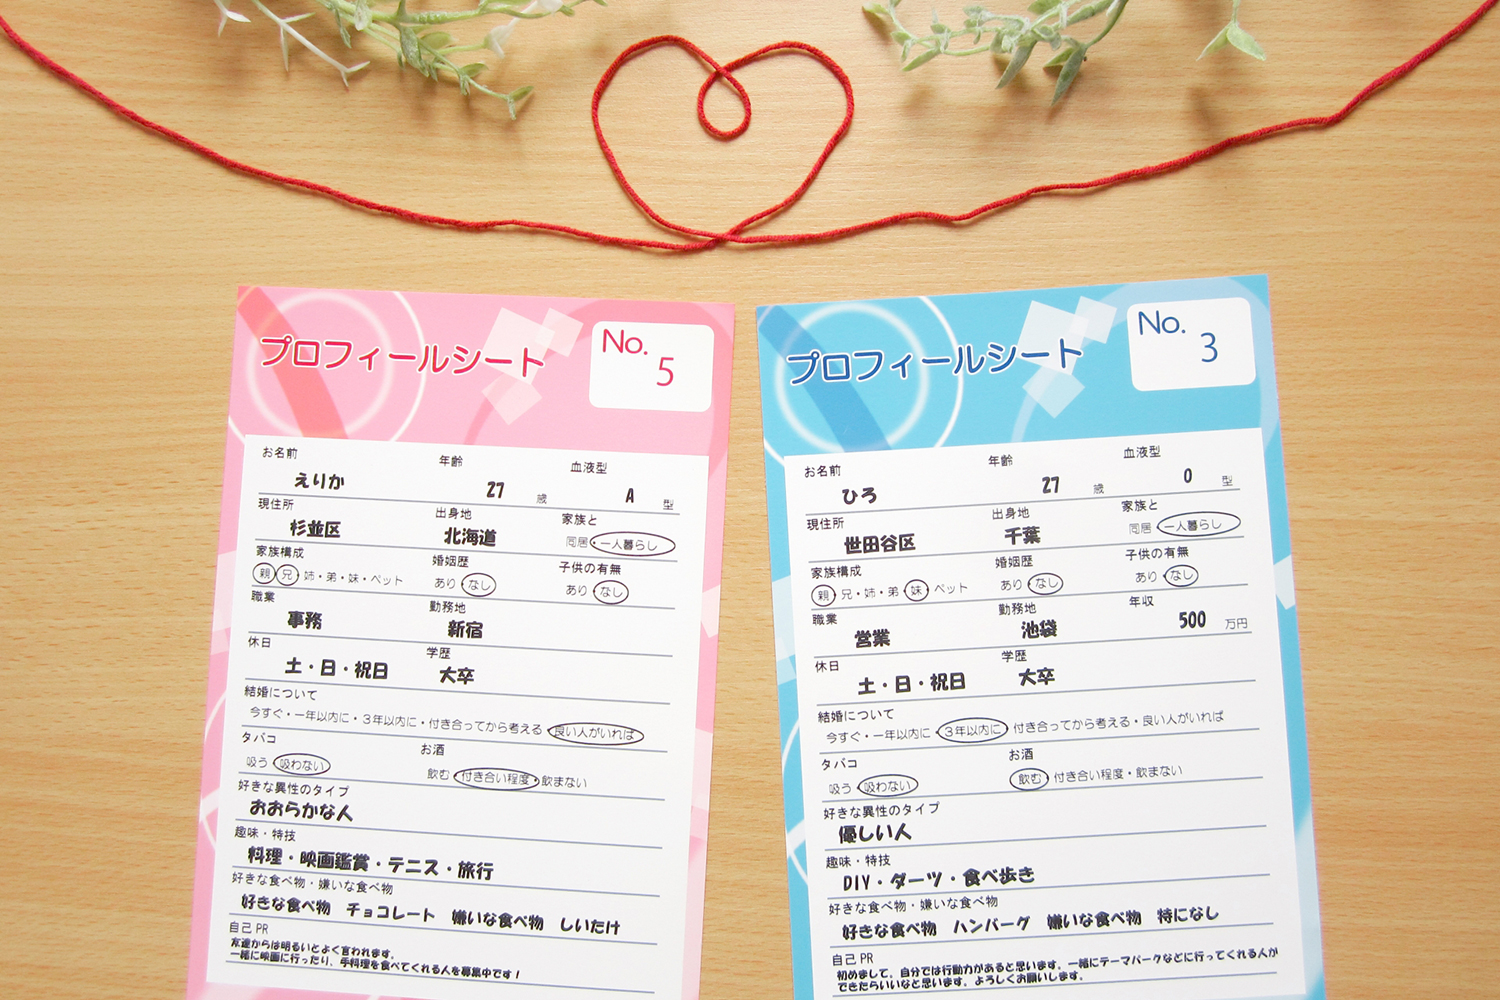 プロフィールシート
No. 5
お名前 年齢 血液型
えりか 27 歳 A 型
現住所 出身地 家族と
杉並区 北海道 同居・一人暮らし
家族構成 婚姻歴 子供の有無
親・兄・姉・弟・妹・ペット あり・なし あり・なし
職業 勤務地
事務 新宿
休日 学歴
土・日・祝日 大卒
結婚について
今すぐ・一年以内に・3年以内に・付き合ってから考える・良い人がいれば
タバコ お酒
吸う・吸わない 飲む・付き合い程度・飲まない
好きな異性のタイプ
おおらかな人
趣味・特技
料理・映画鑑賞・テニス・旅行
好きな食べ物・嫌いな食べ物
好きな食べ物 チョコレート 嫌いな食べ物 しいたけ
自己PR
友達からは明るいとよく言われます。
一緒に映画に行ったり、手料理を食べてくれる人を募集中です!
プロフィールシート
No. 3
お名前 年齢 血液型
ひろ 27 歳 O 型
現住所 出身地 家族と
世田谷区 千葉 同居・一人暮らし
家族構成 婚姻歴 子供の有無
親・兄・姉・弟・妹・ペット あり・なし あり・なし
職業 勤務地 年収
営業 池袋 500 万円
休日 学歴
土・日・祝日 大卒
結婚について
今すぐ・一年以内に・3年以内に・付き合ってから考える・良い人がいれば
タバコ お酒
吸う・吸わない 飲む・付き合い程度・飲まない
好きな異性のタイプ
優しい人
趣味・特技
DIY・ダーツ・食べ歩き
好きな食べ物・嫌いな食べ物
好きな食べ物 ハンバーグ 嫌いな食べ物 特になし
自己PR
初めまして。自分では行動力があると思います。一緒にテーマパークなどに行ってくれる人が
できたらいいなと思います。よろしくお願いします。